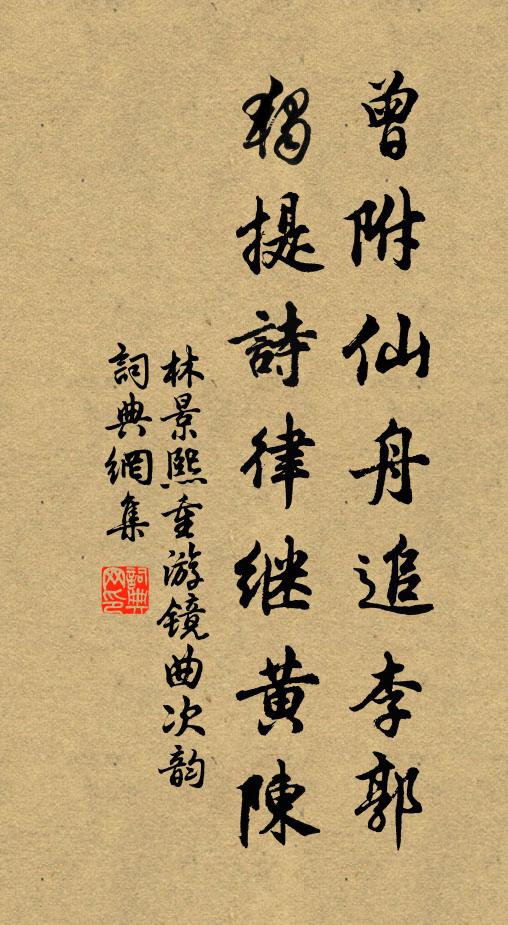 曾附仙舟追李郭
独提詩律继黄陳
林景熙重游镜曲次韵
詞典網集
詞典网印